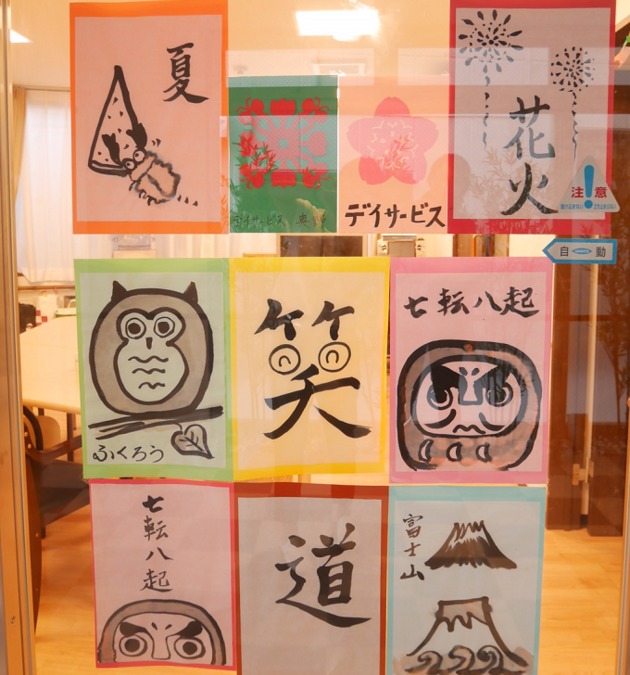 夏
花火
デイサービス
デイサービス
注意
自動
ふくろう
笑
七転八起
七転八起
道
富士山